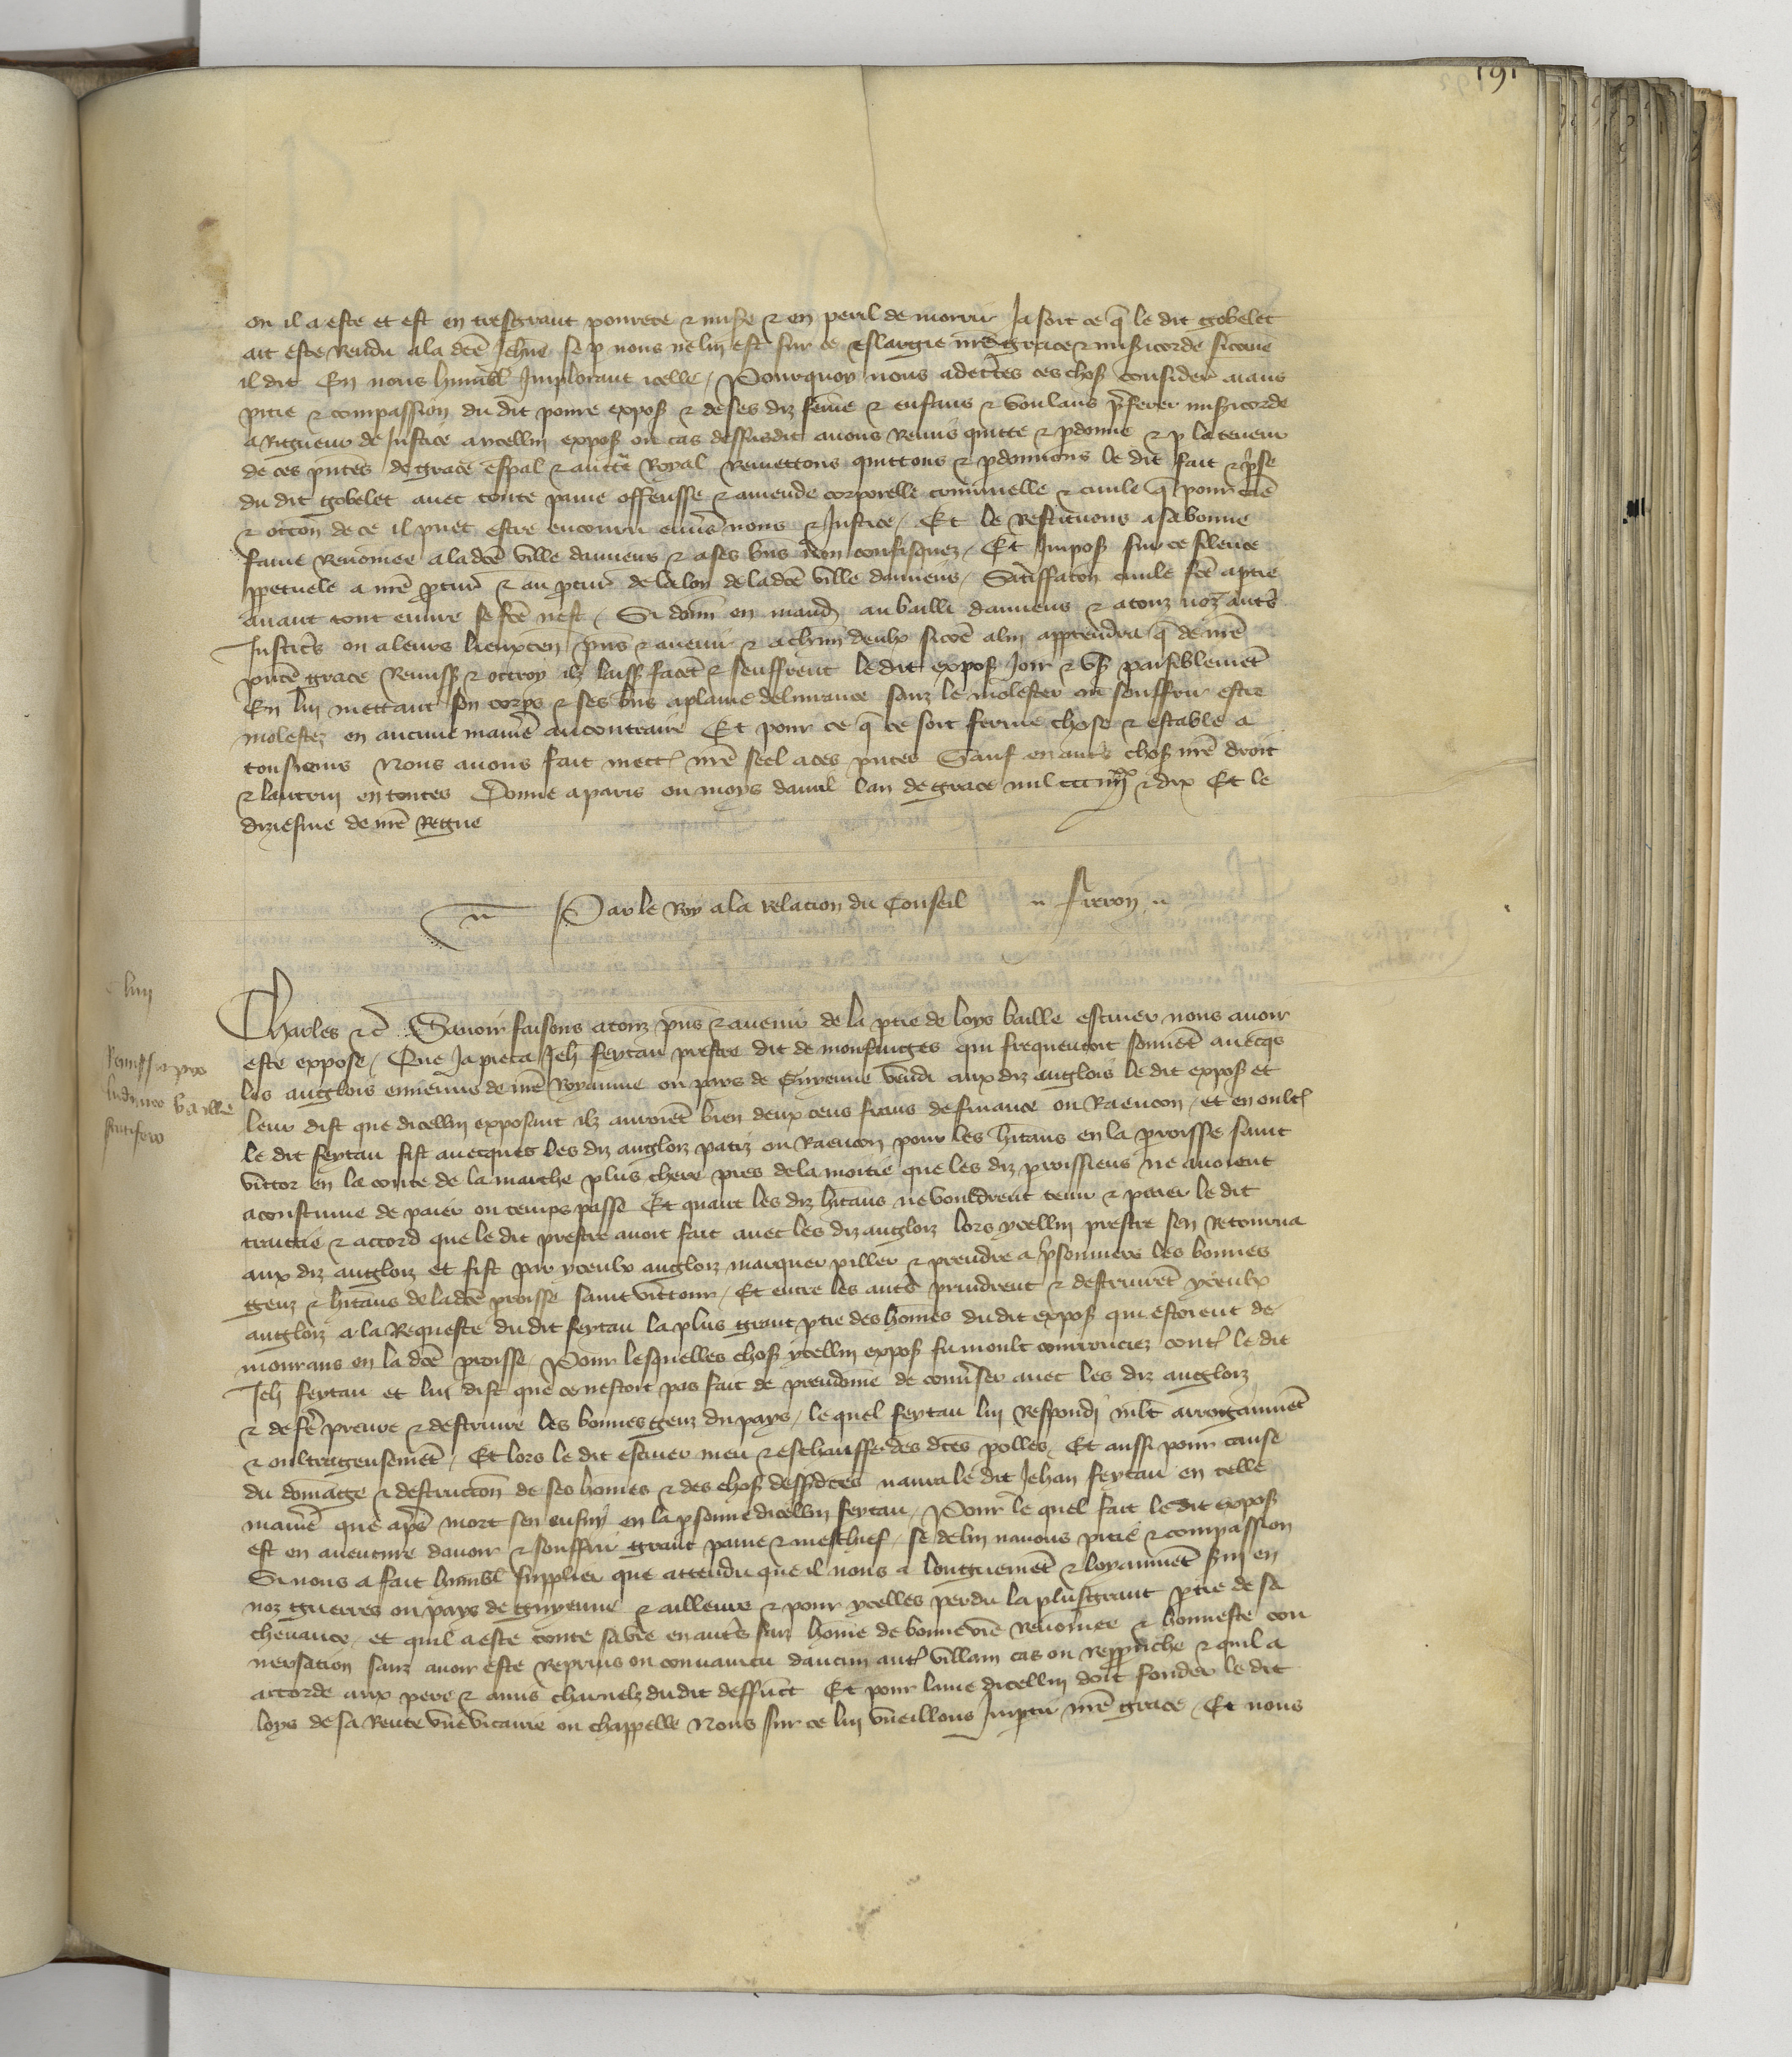 191
ou il a este et est en tresgrant povrete & mise & en peril de morir Ja soit ce q̃ le dit gobelet
ait este Rendu a la dcẽ Jehñe se p nous ne lui est sur ce eslargie nrẽ grace & misicorde sicõme
il dit En nous humbl̃ Implorant icelle / Pourquoy nous adcertes ces chos̃ consider̃ aians
pitie & compassion du dit povre expos̃ & de ses diz fem̃e & enfans & voulans p̃ferer misicorde
a Rigueur de Justice a ycellui expos̃ ou cas dessusdit avons Remis quitte & pdonne & p la teneur
de ces pñtes de grace espal & auctẽ Royal Remettons quittons & pdonnons le dit fait & p̃se
du dit gobelet avec toute paine offensse & amende corporelle criminelle & civile q̃ pour cãe
& occõn de ce il puet estre encouru envs̃ nous & Justice / Et le Restituons a sa bonne
fame Renom̃ee a la dcẽ ville damiens & a ses bñs nõn confisquez / Et Impos̃ sur ce silence
ppetuele a nrẽ pcur̃ & au pcur̃ de la loy de la dcẽ ville damiens / Satiffacõn civile fcẽ a ptie
avant tout euvre se fcẽ nest / Si donñ en mand̃ au bailli damiens & a touz noz autr̃s
Justicẽs ou a leurs lieuxten̄ pñs & avenir & a chũn deulx sicõe a lui apptendra q̃ de nrẽ
pñte grace Remiss̃ & octroy ilz laiss̃ facẽt & seuffrent le dit expos̃ Joir & us̃ paisiblemẽt
En lui mettant son corps & ses bñs a plaine delivrance sanz le molester ou souffrir estre
molestez en aucune maniẽ au contraire Et pour ce q̃ ce soit ferme chose & estable a
tousiours Nous avons fait mectr̃ nrẽ seel a ces pñtes Sauf en autr̃s chos̃ nrẽ droit
& lautrui en toutes Donne a paris ou moys davril lan de grace mil ccc iiijxx & dix Et le
diziesme de nrẽ Regne
Par le Roy a la relacion du Conseil Freron
Remissio pro
ludovico baille
scutifero
Charles &c̃ Savoir faisons a touz pñs & avenir de la ptie de loys baille escuier nous avoir
este expose / Que Ja pieca Jeh̃ feytau prestre dit de monfuiges qui frequentoit souvẽt avecqs̃
les anglois ennemis de nrẽ Royaume ou pays de Guyenne vendi aux diz anglois le dit expos̃ et
leur dist que dicellui exposant ilz auroiẽt bien deux cens frans de finance ou Raencon / et en oultr̃
le dit feytau fist avecques les diz anglois patiz ou Raencon pour les hĩtans en la proisse saint
victor en la conte de la marche plus chere pres de la moitie que les diz proissiens ne avoient
acoustume de paier ou temps passe Et quant les diz hĩtans ne vouldrent tenir & paier le dit
traictie & accord que le dit prestre avoit fait avec les diz anglois lors ycellui prestre sen Retourna
aux diz anglois et fist par yceulx anglois marquer piller & prendre a p̃sonniers les bonnes
genz & hĩtans de la dcẽ proisse saint victour / Et entre les autr̃s prindrent & destruirẽt yceulx
anglois a la Requeste du dit feytau la plus grant ptie des hom̃es du dit expos̃ qui estoient de
mourans en la dcẽ proisse / Pour lesquelles chos̃ ycellui expos̃ fu moult courrouciez contr̃ le dit
Jeh̃ feytau et lui dist que ce nestoit pas fait de preudom̃e de convs̃er avec les diz anglois
& de fẽ prenre & destruire les bonnes genz du pays / lequel feytau lui Respondi mlt̃ arrogaum̃ẽt
& oultrageusemẽt / Et lors le dit escuier meu & eschauffe des dc̃es polles / Et aussi pour cause
du dom̃age & destruccõn de ses hom̃es & des chos̃ dessdc̃es navra le dit Jehan feytau en telle
maniẽ que apr̃s mort sen ensuy en la psonne dicellui feytau / Pour le quel fait le dit expos̃
est en aventure davoir & souffrir grant paine & meschief / se de lui navons pitie & compassion
Si nous a fait humbl̃ supplier que attendu que il nous a longuemẽt & loyaumẽt s̃vi en
noz guerres ou pays de guyenne & ailleurs & pour ycelles perdu la plusgrant ptie de sa
chevance / et quil a este toute sa vie en autr̃s faiz hom̃e de bonne vie Renom̃ee & honneste con
versacion sanz avoir este Reprins ou convaincu daucun autr̃ villain cas ou Reprouche & quil a
accorde aux pere & amis charnelz du dit deffunct Et pour lame dicellui doit fonder le dit
loys de sa Rente une vicairie ou chappelle Nous sur ce lui vueillons Imptir nrẽ grace / Et nous